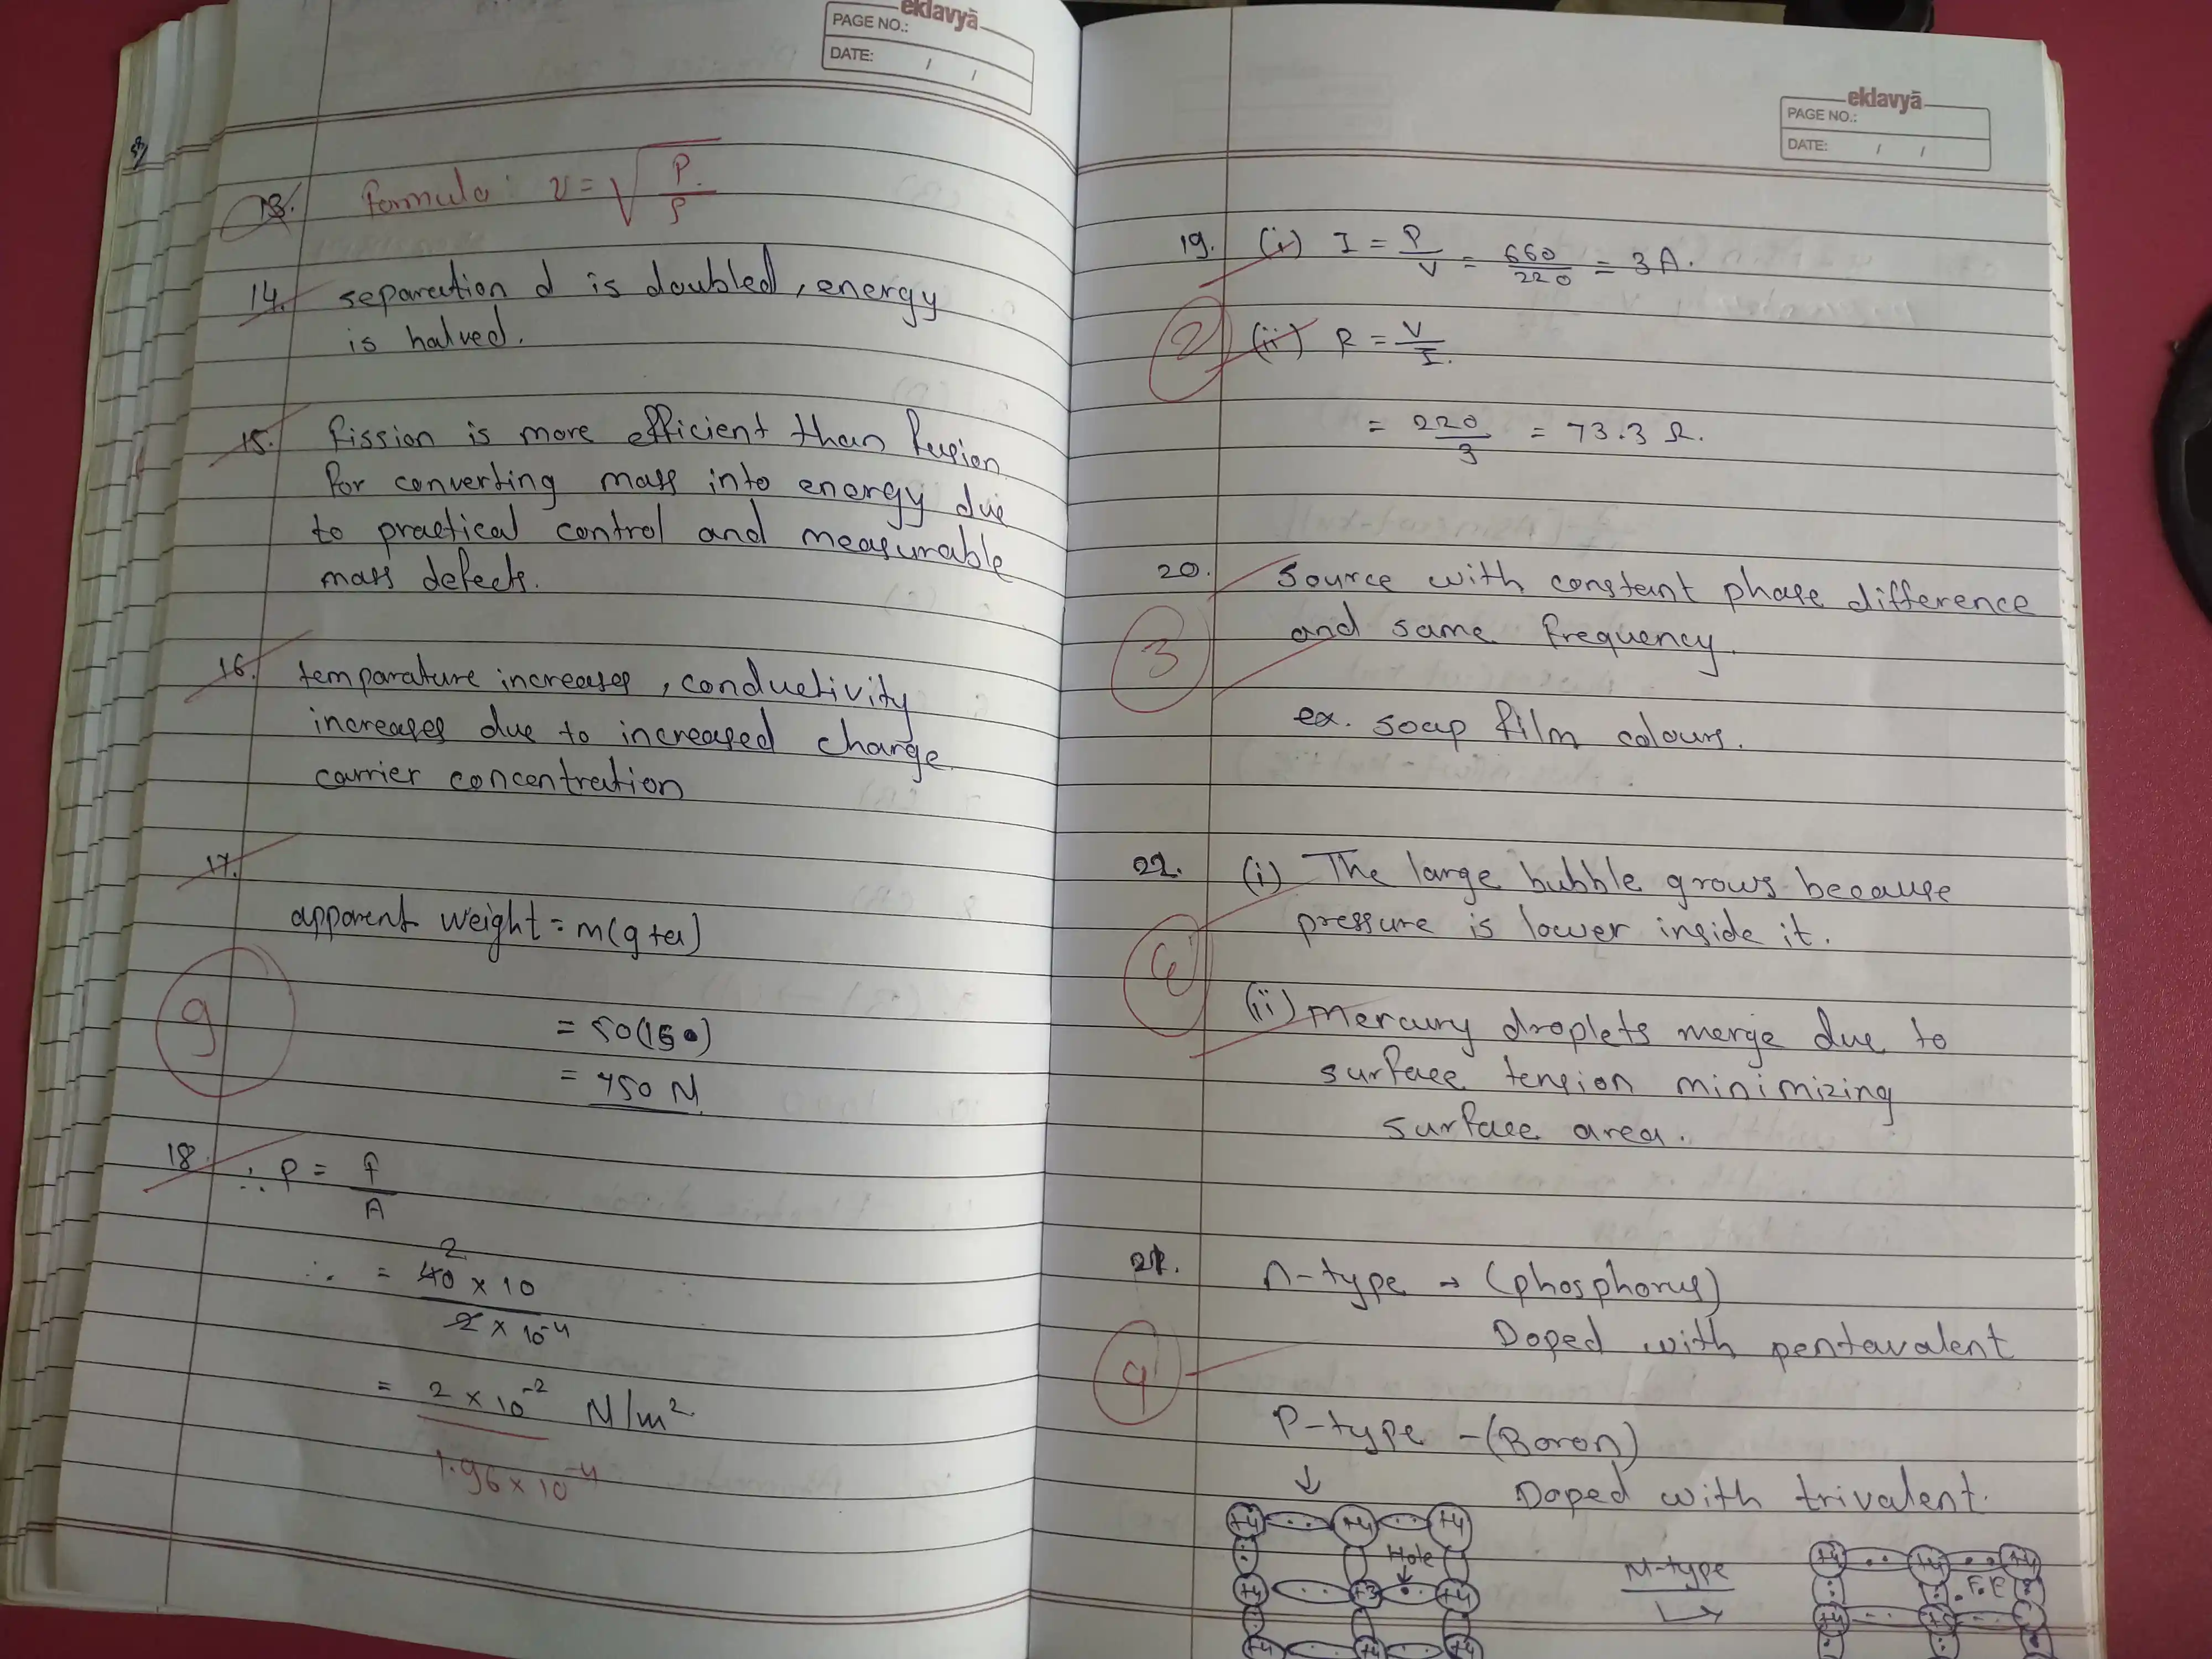 eklavyā
PAGE NO.:
DATE: / /
13. formula: v = √(P/ρ)
14. separation d is doubled, energy
is halved.
15. fission is more efficient than fusion
for converting mass into energy due
to practical control and measurable
mass defects.
16. temparature increases, conductivity
increases due to increased charge
carrier concentration
17.
apparent weight = m(g+a)
9
= 50(15)
= 750 N
18. ∴ P = F/A
2
∴ = 40 × 10 / 2 × 10⁻⁴
= 2 × 10⁻² N/m²
1.96 × 10⁻⁴
eklavyā
PAGE NO.:
DATE: / /
19. (i) I = P/V = 660/220 = 3 A.
2
(ii) R = V/I.
= 220/3 = 73.3 Ω.
20. source with constant phase difference
and same frequency.
3
ex. soap film colours.
22. (i) The large bubble grows because
pressure is lower inside it.
(ii) Mercury droplets merge due to
surface tension minimizing
surface area.
21. n-type → (phosphorus)
Doped with pentavalent
P-type - (Boron)
↓
Doped with trivalent.
+4 +4 +4
Hole
+4 +3 +4
+4 +4 +4
N-type
+4 +4 +4
F.E
+4